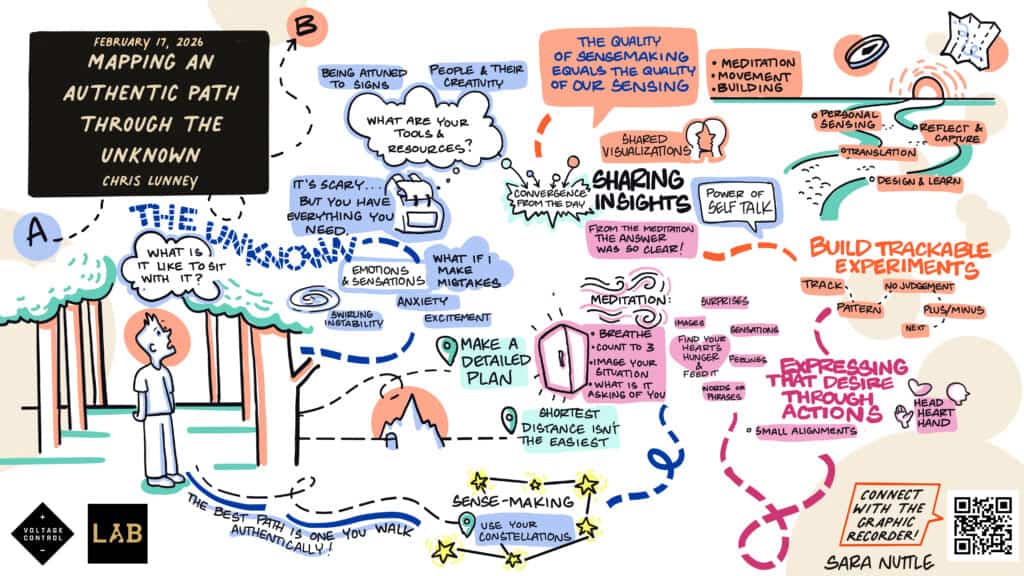 FEBRUARY 17, 2026
MAPPING AN
AUTHENTIC PATH
THROUGH THE
UNKNOWN
CHRIS LUNNEY
A
B
THE UNKNOWN
WHAT IS
IT LIKE TO SIT
WITH IT?
BEING ATTUNED
TO SIGNS
PEOPLE & THEIR
CREATIVITY
WHAT ARE YOUR
TOOLS &
RESOURCES?
IT'S SCARY...
BUT YOU HAVE
EVERYTHING YOU
NEED.
EMOTIONS
& SENSATIONS
WHAT IF I
MAKE
MISTAKES
SWIRLING
INSTABILITY
ANXIETY
EXCITEMENT
MAKE A
DETAILED
PLAN
SHORTEST
DISTANCE ISN'T
THE EASIEST
THE BEST PATH IS ONE YOU WALK
AUTHENTICALLY!
SENSE-MAKING
USE YOUR
CONSTELLATIONS
THE QUALITY
OF SENSEMAKING
EQUALS THE QUALITY
OF OUR SENSING
SHARED
VISUALIZATIONS
CONVERGENCE
FROM THE DAY
SHARING
INSIGHTS
POWER OF
SELF TALK
FROM THE MEDITATION
THE ANSWER
WAS SO CLEAR!
MEDITATION:
• BREATHE
COUNT TO 3
• IMAGE YOUR
SITUATION
• WHAT IS IT
ASKING OF YOU
SURPRISES
IMAGES
SENSATIONS
FIND YOUR
HEART'S
HUNGER
& FEED IT
FEELINGS
WORDS OR
PHRASES
• MEDITATION
• MOVEMENT
• BUILDING
PERSONAL
SENSING
REFLECT &
CAPTURE
TRANSLATION
DESIGN & LEARN
BUILD TRACKABLE
EXPERIMENTS
TRACK
NO JUDGEMENT
PATTERN
PLUS/MINUS
NEXT
EXPRESSING
THAT DESIRE
THROUGH
ACTIONS
SMALL ALIGNMENTS
HEAD
HEART
HAND
CONNECT
WITH THE
GRAPHIC
RECORDER!
SARA NUTTLE
VOLTAGE
CONTROL
LAB